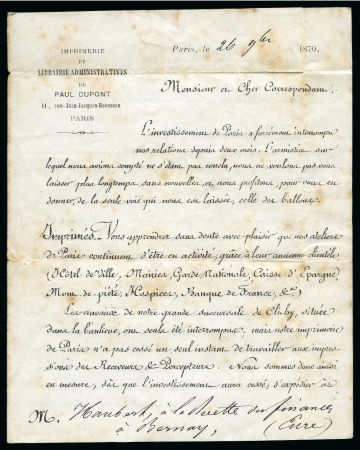 IMPRIMERIE
ET
LIBRAIRIE ADMINISTRATIVES
DE
PAUL DUPONT
41, rue Jean-Jacques-Rousseau
PARIS
Paris, le 26 9bre 1870.
Monsieur et Cher Correspondant,
L'investissement de Paris a forcément interrompu
nos relations depuis deux mois. L'armistice sur
lequel nous avions compté ne s'étant pas conclu, nous ne voulons pas vous
laisser plus longtemps sans nouvelles, et nous profitons, pour vous en
donner, de la seule voie qui nous est laissée, celle des ballons.
Imprimés. Vous apprendrez sans doute avec plaisir que nos ateliers
de Paris continuent d'être en activité, grâce à leur ancienne clientèle
(Hôtel de Ville, Mairies, Garde Nationale, Caisse d'Epargne,
Mont de piété, Hospices, Banque de France, &a)
Les travaux de notre grande succursale de Clichy, située
dans la banlieue, ont seuls été interrompus, mais notre imprimerie
de Paris n'a pas cessé un seul instant de travailler aux impres-
sions des Receveurs & Percepteurs. Nous sommes donc ainsi
en mesure, dès que l'investissement aura cessé, d'expédier à
M. Haubert, à la Recette des finances
à Bernay, (Eure)